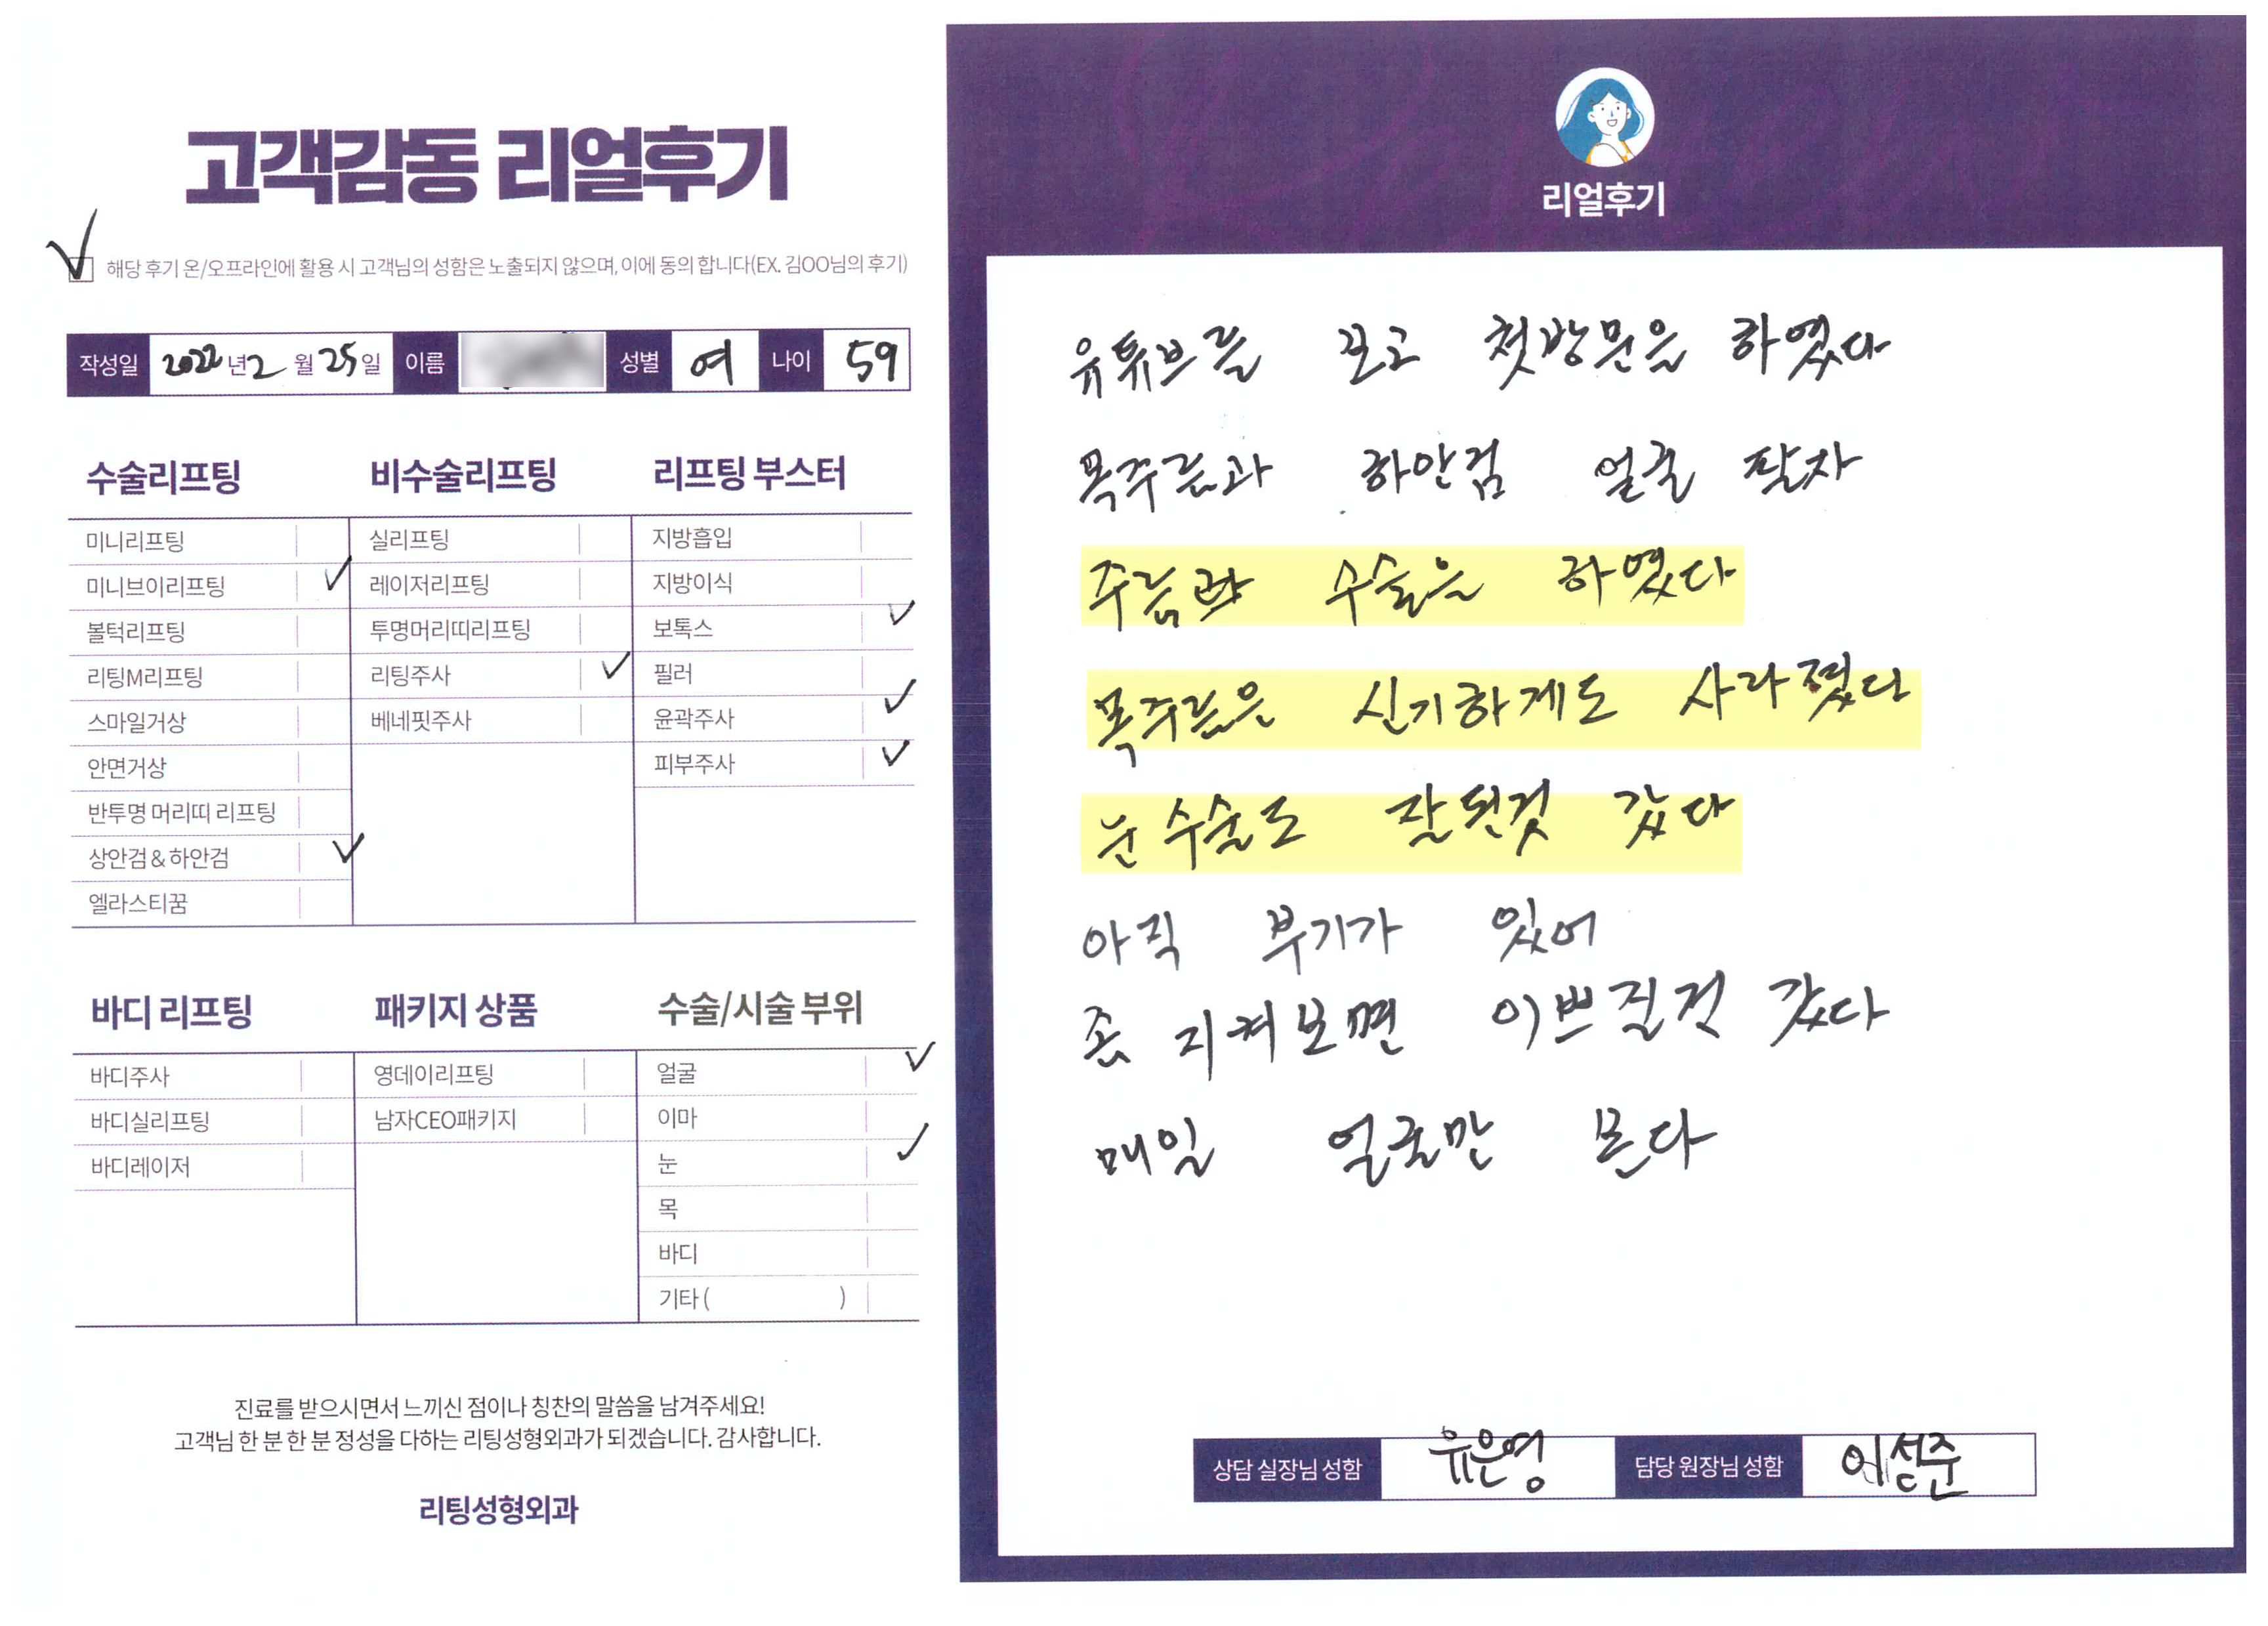 고객감동 리얼후기
해당 후기 온/오프라인에 활용 시 고객님의 성함은 노출되지 않으며, 이에 동의 합니다(EX. 김OO님의 후기)
작성일 2022년 2월 25일 이름 성별 여 나이 59
수술리프팅
미니리프팅
미니브이리프팅
볼턱리프팅
리팅M리프팅
스마일거상
안면거상
반투명 머리띠 리프팅
상안검 & 하안검
엘라스티꿈
비수술리프팅
실리프팅
레이저리프팅
투명머리띠리프팅
리팅주사
베네핏주사
리프팅 부스터
지방흡입
지방이식
보톡스
필러
윤곽주사
피부주사
바디 리프팅
바디주사
바디실리프팅
바디레이저
패키지 상품
영데이리프팅
남자CEO패키지
수술/시술 부위
얼굴
이마
눈
목
바디
기타 ( )
진료를 받으시면서 느끼신 점이나 칭찬의 말씀을 남겨주세요!
고객님 한 분 한 분 정성을 다하는 리팅성형외과가 되겠습니다. 감사합니다.
리팅성형외과
리얼후기
유튜브를 보고 첫방문을 하였다
목주름과 하안검 얼굴 팔자
주름과 수술을 하였다
목주름은 신기하게도 사라졌다
눈수술도 잘된것 같다
아직 부기가 있어
좀 지켜보면 이쁘질것 같다
매일 얼굴만 본다
상담 실장님 성함 유은영 담당 원장님 성함 이성준